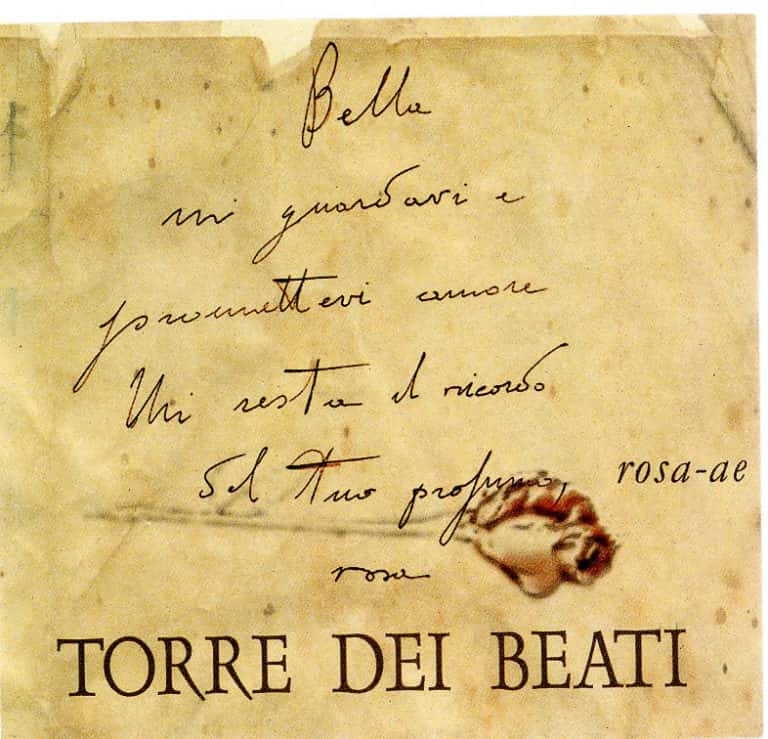 Bella
mi guardavi e
promettevi amore
Mi resta il ricordo
del tuo profumo,
rosa-ae
rosa
TORRE DEI BEATI